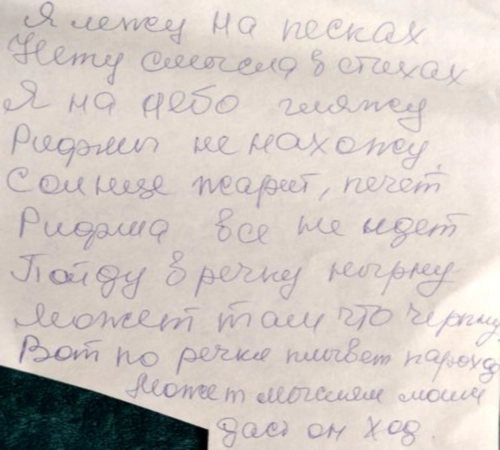 Я лежу на песках
Нету смысла в стихах
Я на небо гляжу
Рифмы не нахожу
Солнце жарит, печет
Рифма все не идет
Пойду в речку нырну
Может там что черпну
Вот по речке плывет пароход
Может мыслям моим
даст он ход.